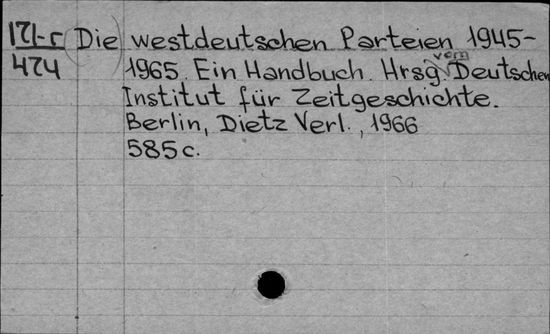 171-г (Die) westdeutschen Parteien 1945-
474 1965. Ein Handbuch. Hrsg. vom Deutschen
Institut für Zeitgeschichte.
Berlin, Dietz Verl., 1966
585 c.